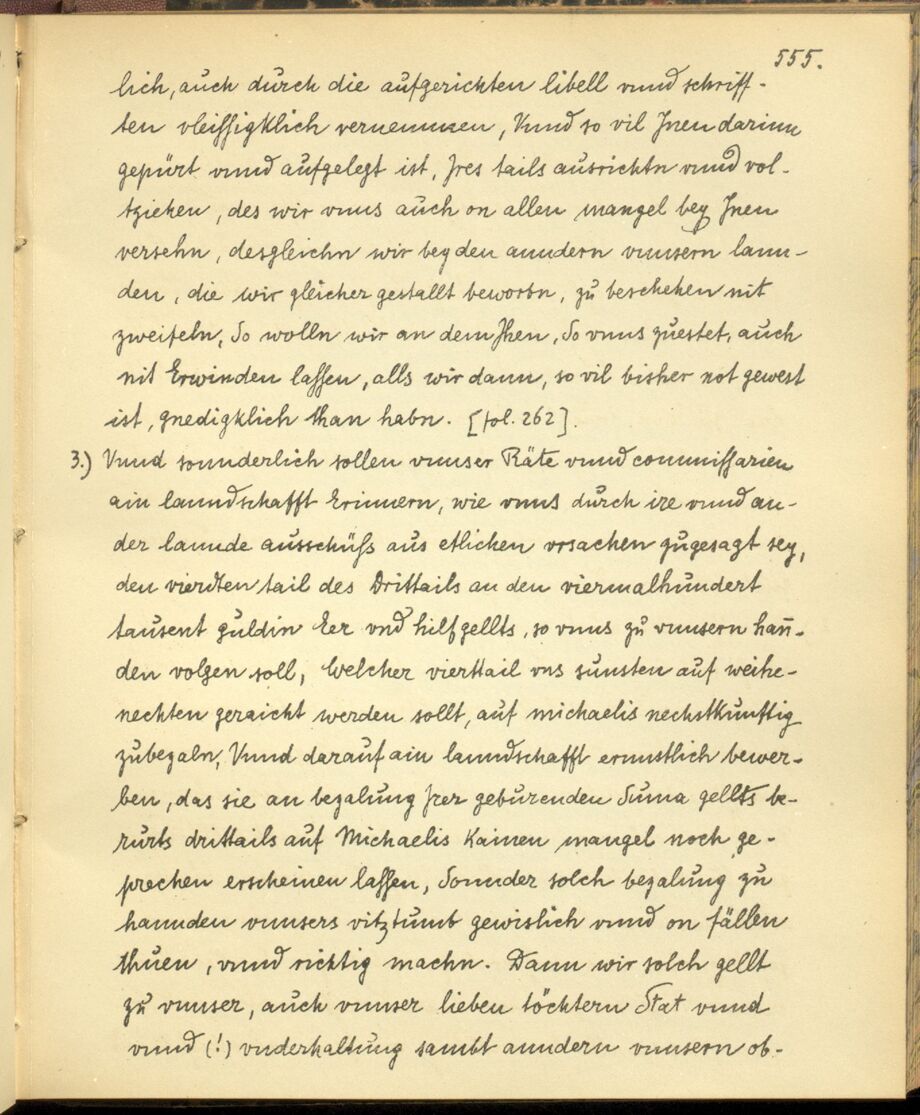 555.
lich, auch durch die aufgerichten libell vnnd schriff-
ten vleissigklich vernemmen, Vnnd so vil Jnen darinn
gepürt vnnd aufgelegt ist, Jres tails ausrichtn vnnd vol-
tziehen, des wir vnns auch on allen mangel bey Jnen
versehn, desgleichn wir bey den anndern vnnsern lann-
den, die wir gleicher gestallt beworbn, zu beschehen nit
zweifeln, So wolln wir an dem Jhen, So vnns zuestet, auch
nit Erwinden lassen, alls wir dann, so vil bisher not gewest
ist, gnedigklich than habn. [fol. 262].
3.) Vnnd sonnderlich sollen vnnser Räte vnnd commissarien
ain lanndschafft Erinnern, wie vnns durch ire vnnd an-
der lannde ausschüss aus etlichen vrsachen zugesagt sey,
den vierdten tail des Drittails an den viermalhundert
tausent guldin Eer vnd hilfgellts, so vnns zu vnnsern han̄-
den volgen soll, Welcher vierttail vns sunsten auf weihe-
nechten geraicht werden sollt, auf michaelis nechstkunftig
zubezaln, Vnnd darauf ain lanndschafft ernnstlich bewer-
ben, das sie an bezalung Jrer geburenden Suma gellts be-
rurts drittails auf Michaelis kainen mangel noch ge-
prechen erscheinen lassen, Sonnder solch bezalung zu
hannden vnnsers vitztumb gewislich vnnd on fällen
thuen, vnnd richtig machn. Dann wir solch gellt
zu vnnser, auch vnnser lieben töchtern Stat vnnd
vnnd (!) vnderhaltung sambt anndern vnnsern ob-